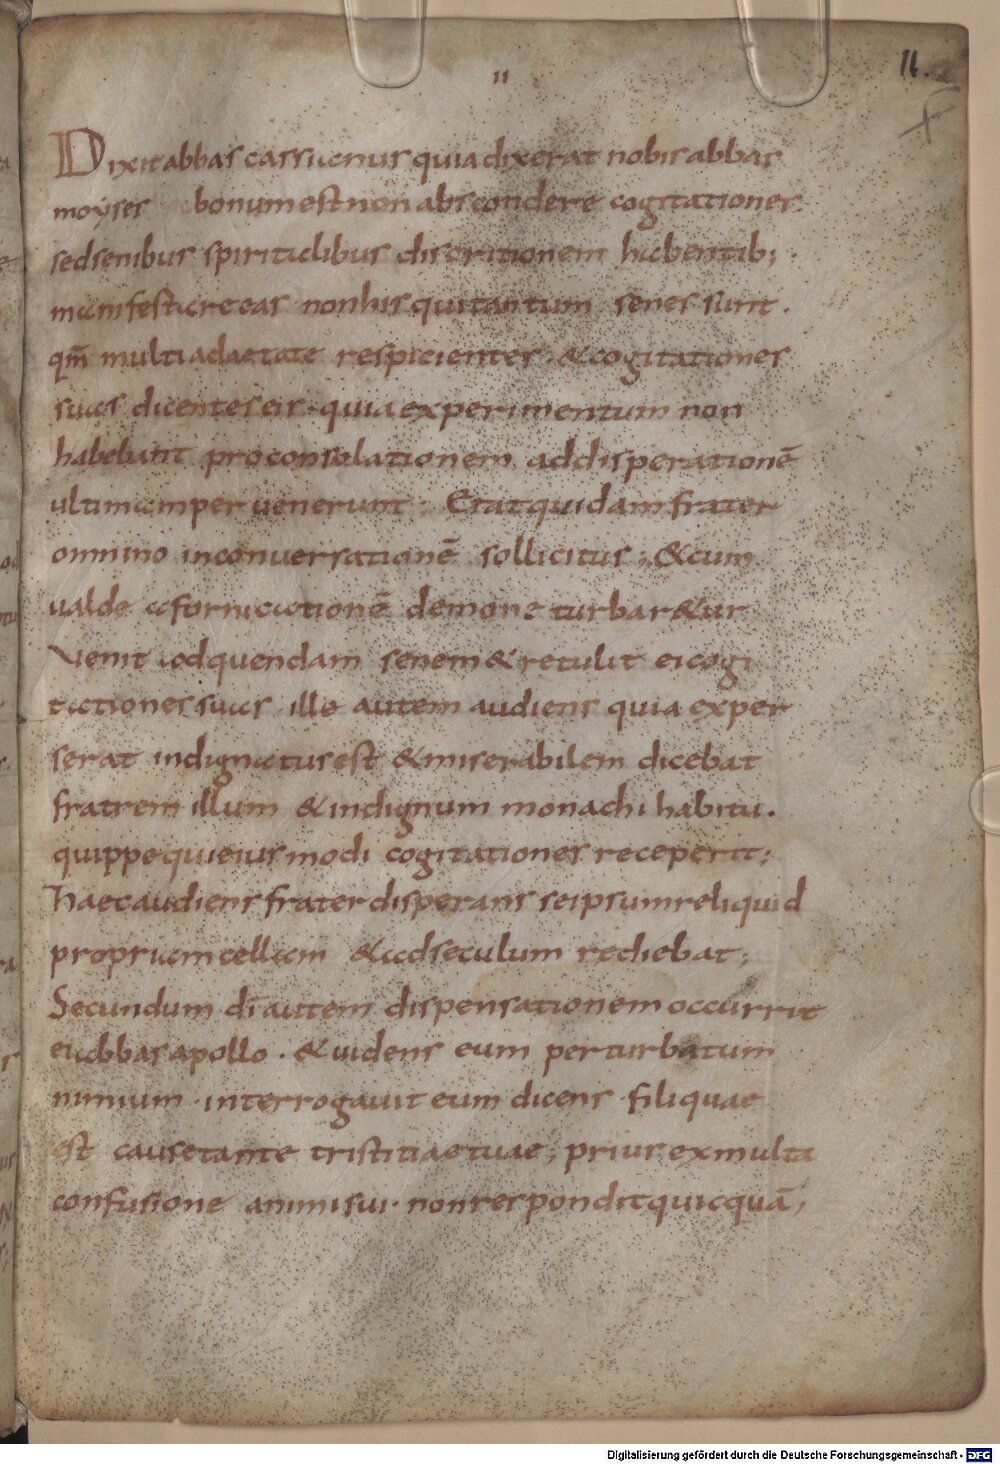 11
14.
Dixit abbas cassianus quia dixerat nobis abbas
moyses bonum est non abscondere cogitationes.
sed senibus spiritalibus discritionem habentib;
manifestare eas non his qui tantum senes sunt.
qm̄ multi ad aetate respicientes. & cogitationes
suas dicentes eis. quia experimentum non
habebant pro consolationem ad disperationē
ultimam peruenerunt; Erat quidam frater
omnino in conuersationē sollicitus; & cum
ualde a fornicationē demone turbar&ur
Venit ad quendam senem & retulit ei cogi
tationes suas. ille autem audiens quia exper
serat indignatus est & miserabilem dicebat
fratrem illum & indignum monachi habitu.
quippe qui eiusmodi cogitationes receperit;
haec audiens frater disperans se ipsum reliquid
propriam cellam & ad seculum rediebat;
Secundum dī autem dispensationem occurrit
ei abbas apollo. & uidens eum perturbatum
nimium. interrogauit eum dicens. fili quae
est causetante tristitiae tuae; prius ex multa
confusione animi sui. non respondit quicquā;
Digitalisierung gefördert durch die Deutsche Forschungsgemeinschaft - DFG